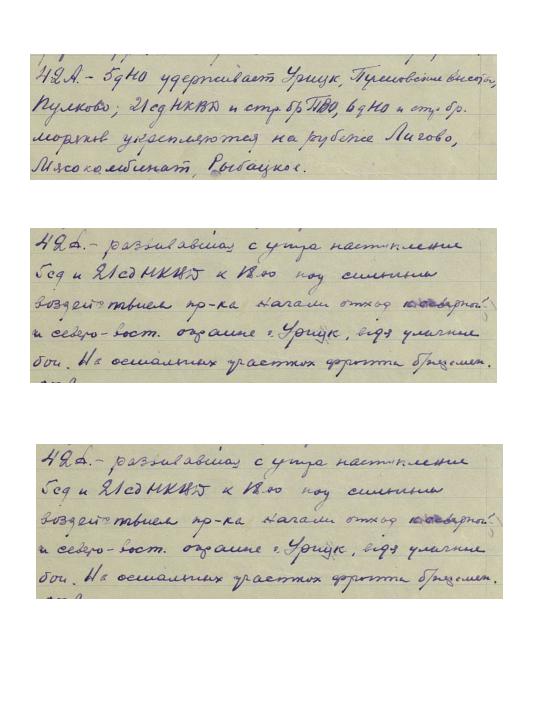 42А.- 5дНО удерживает Урицк, Пулковские высоты,
Пулково; 21сд НКВД и стр. бр ПВО, 6дНО и стр. бр.
моряков укрепляются на рубеже Лигово,
Мясокомбинат, Рыбацкое.
42А.- развивавшая с утра наступление
5сд и 21сд НКВД к 18.00 под сильным
воздействием пр-ка начали отход к северной
и северо-вост. окраине г. Урицк, ведя уличные
бои. На остальных участках фронта б/измен.
42А.- развивавшая с утра наступление
5сд и 21сд НКВД к 18.00 под сильным
воздействием пр-ка начали отход к северной
и северо-вост. окраине г. Урицк, ведя уличные
бои. На остальных участках фронта б/измен.